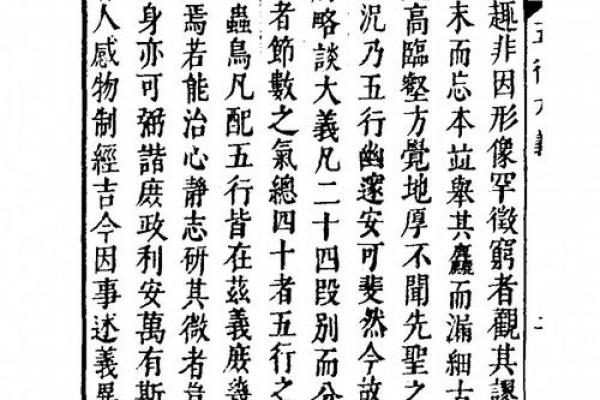 五行大義
二
趣非因形像罕徵窮者觀其謬
末而忘本並舉其麤而漏細古
高臨壑方覺地厚不聞先聖之
況乃五行幽邃安可斐然今故
略談大義凡二十四段別而分
者節數之氣總四十者五行之
蟲鳥凡配五行皆在茲義庶幾
焉若能治心靜志研其微者豈
身亦可弼諧庶政利安萬有斯
人感物制經吉今因事述義異